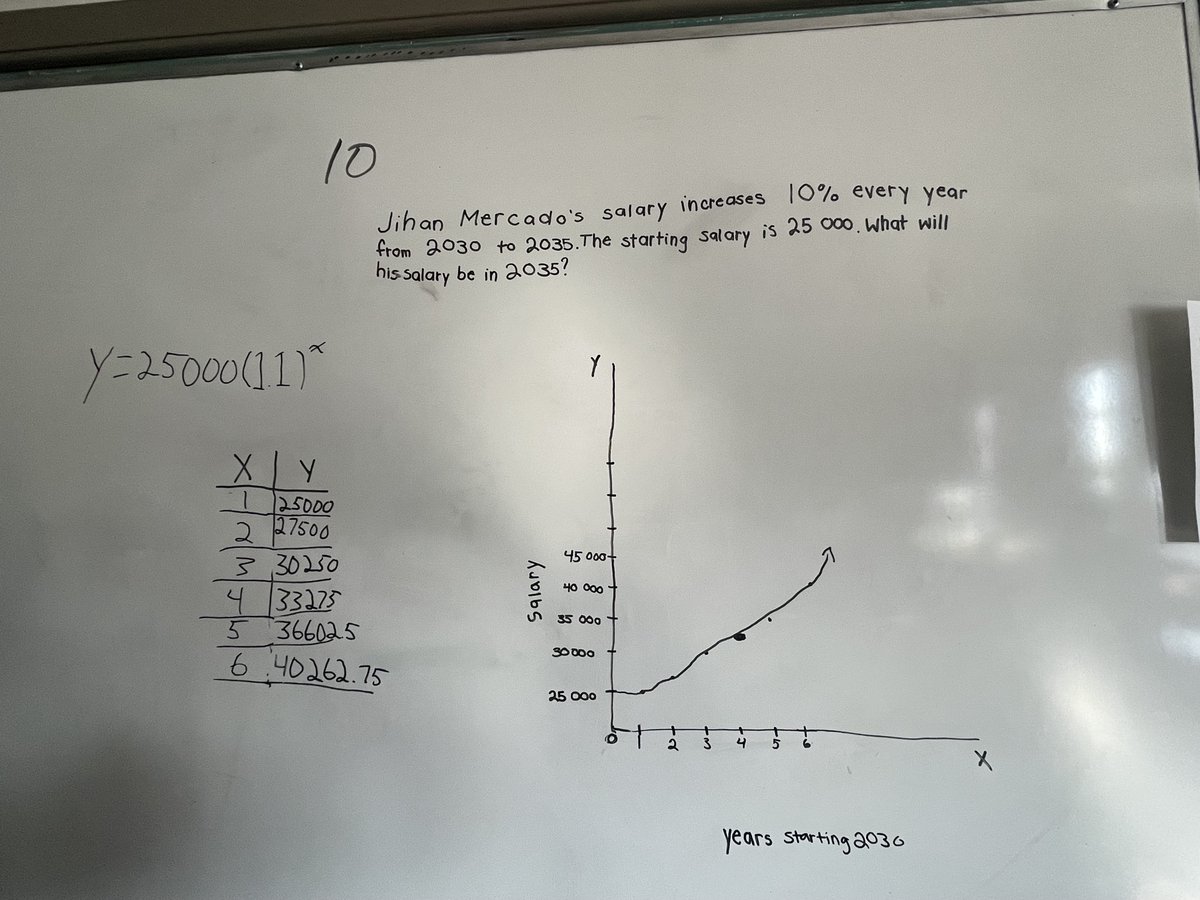 10
Jihan Mercado's salary increases 10% every year
from 2030 to 2035. The starting salary is 25 000. What will
his salary be in 2035?
y=25000(1.1)^x
X | Y
1 | 25000
2 | 27500
3 | 30250
4 | 33275
5 | 366025
6 | 40262.75
Y
45 000
40 000
35 000
30000
25 000
Salary
0 1 2 3 4 5 6
X
years starting 2030